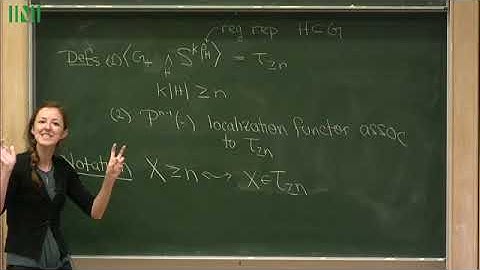 reg rep H⊂G
Defs (1) ⟨G₊ ∧_H S^{kρ_H}⟩ = τ_{≥n}
k|H| ≥ n
(2) P^{n-1}(-) localization functor assoc
to τ_{≥n}
Notation X ≥ n ⇝ X ∈ τ_{≥n}